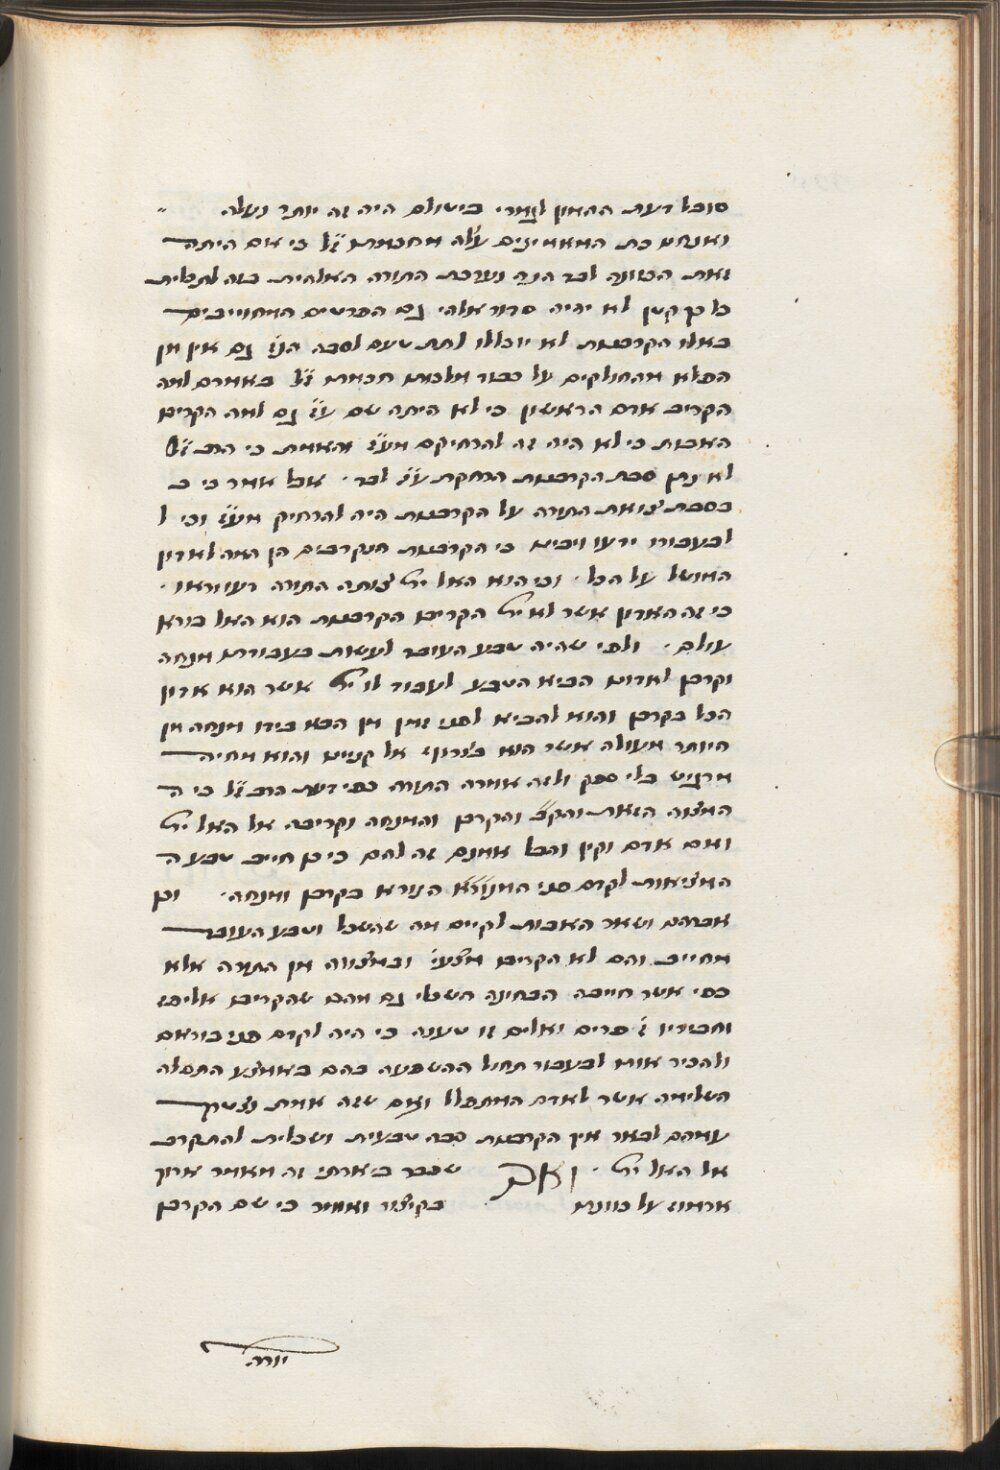 סובל דעת ההמון לגמרי בישולם היה זה יותר נעלה
ואנחנו כת המאמינים עלה מחכמת ז״ל כי אם היתה
זאת הכוונה לבד הנה נערכת התורה האלהית בזה לתכלית
כל כך קטן לא יהיה סדור אלהי גם הפרטים המחוייבים
באלו הקרבנות לא יוכללו לתת טעם לסבה הנז׳ גם אין מן
הפלא מהחולקים על כבוד מלכות חכמת ז״ל באמרם למה
הקריב אדם הראשון כי לא היתה שם ע״ז גם למה הקריבו
האבות כי לא היה זה להרחיקם מע״ז והאמת כי הרב ז״ל
לא נתן סבת הקרבנות הרחקת ע״ז לבד · אבל אמר כי
בסבת צואת התורה על הקרבנות היה להרחיק מע״ז וכי
לבעבור ידעו ויבינו כי הקרבנות הנקרבים הן המה לאדון
המושל על הכל · וכי הוא האל ית׳ צותה התורה
כי זה האדון אשר לא ית׳ הקריבו הקרבנות הוא האל בורא
עולם · ולפי שהיה טבע העובד לעשות בעבודתו מנחה
וקרבן לאדונו הביא הטבע לעבוד לו ית׳ אשר הוא אדון
הכל בקרבן והוא להביא לפניו זמן מן הבא בידו מנחה מן
היותר מעולה אשר הוא בצורתו אל קניינו והוא מחיה
מרגיש בלי ספק ולזה אמרה התורה כפי דעת הרב ז״ל כי
המצוה הזאת והקרבן והמנחה נקריבה אל האל ית׳
ואם אדם וקין והבל אמנם זה להם כי כן חייב טבע
המציאות לקדם פני הנורא בקרבן ומנחה · וכן
אברהם ושאר האבות לקיים מה שהשכל וטבע העובד
מחייב והם לא הקריבו ובמצוה מן התורה אלא
כפי אשר חייבה הבחינה השכלי גם מהם שהקריבו אליפז
וחביריו ז׳ פרים ואלים זו טענה כי היה לקדם פני בוראם
ולהכיר אותו לבעבור תחול ההשפעה בהם באמצע התפלה
השלימה אשר לאדם המתפלל ואם שזה אמת נצטרך
עמהם לבאר אין הקרבנות סבה טבעית ושכלית להתקרב
אל האל ית׳ · ואם שכבר ביארתי זה מאמר ארוך
ארמוז על כוונתו בקיצור ואומר כי שם הקרבן
יורה